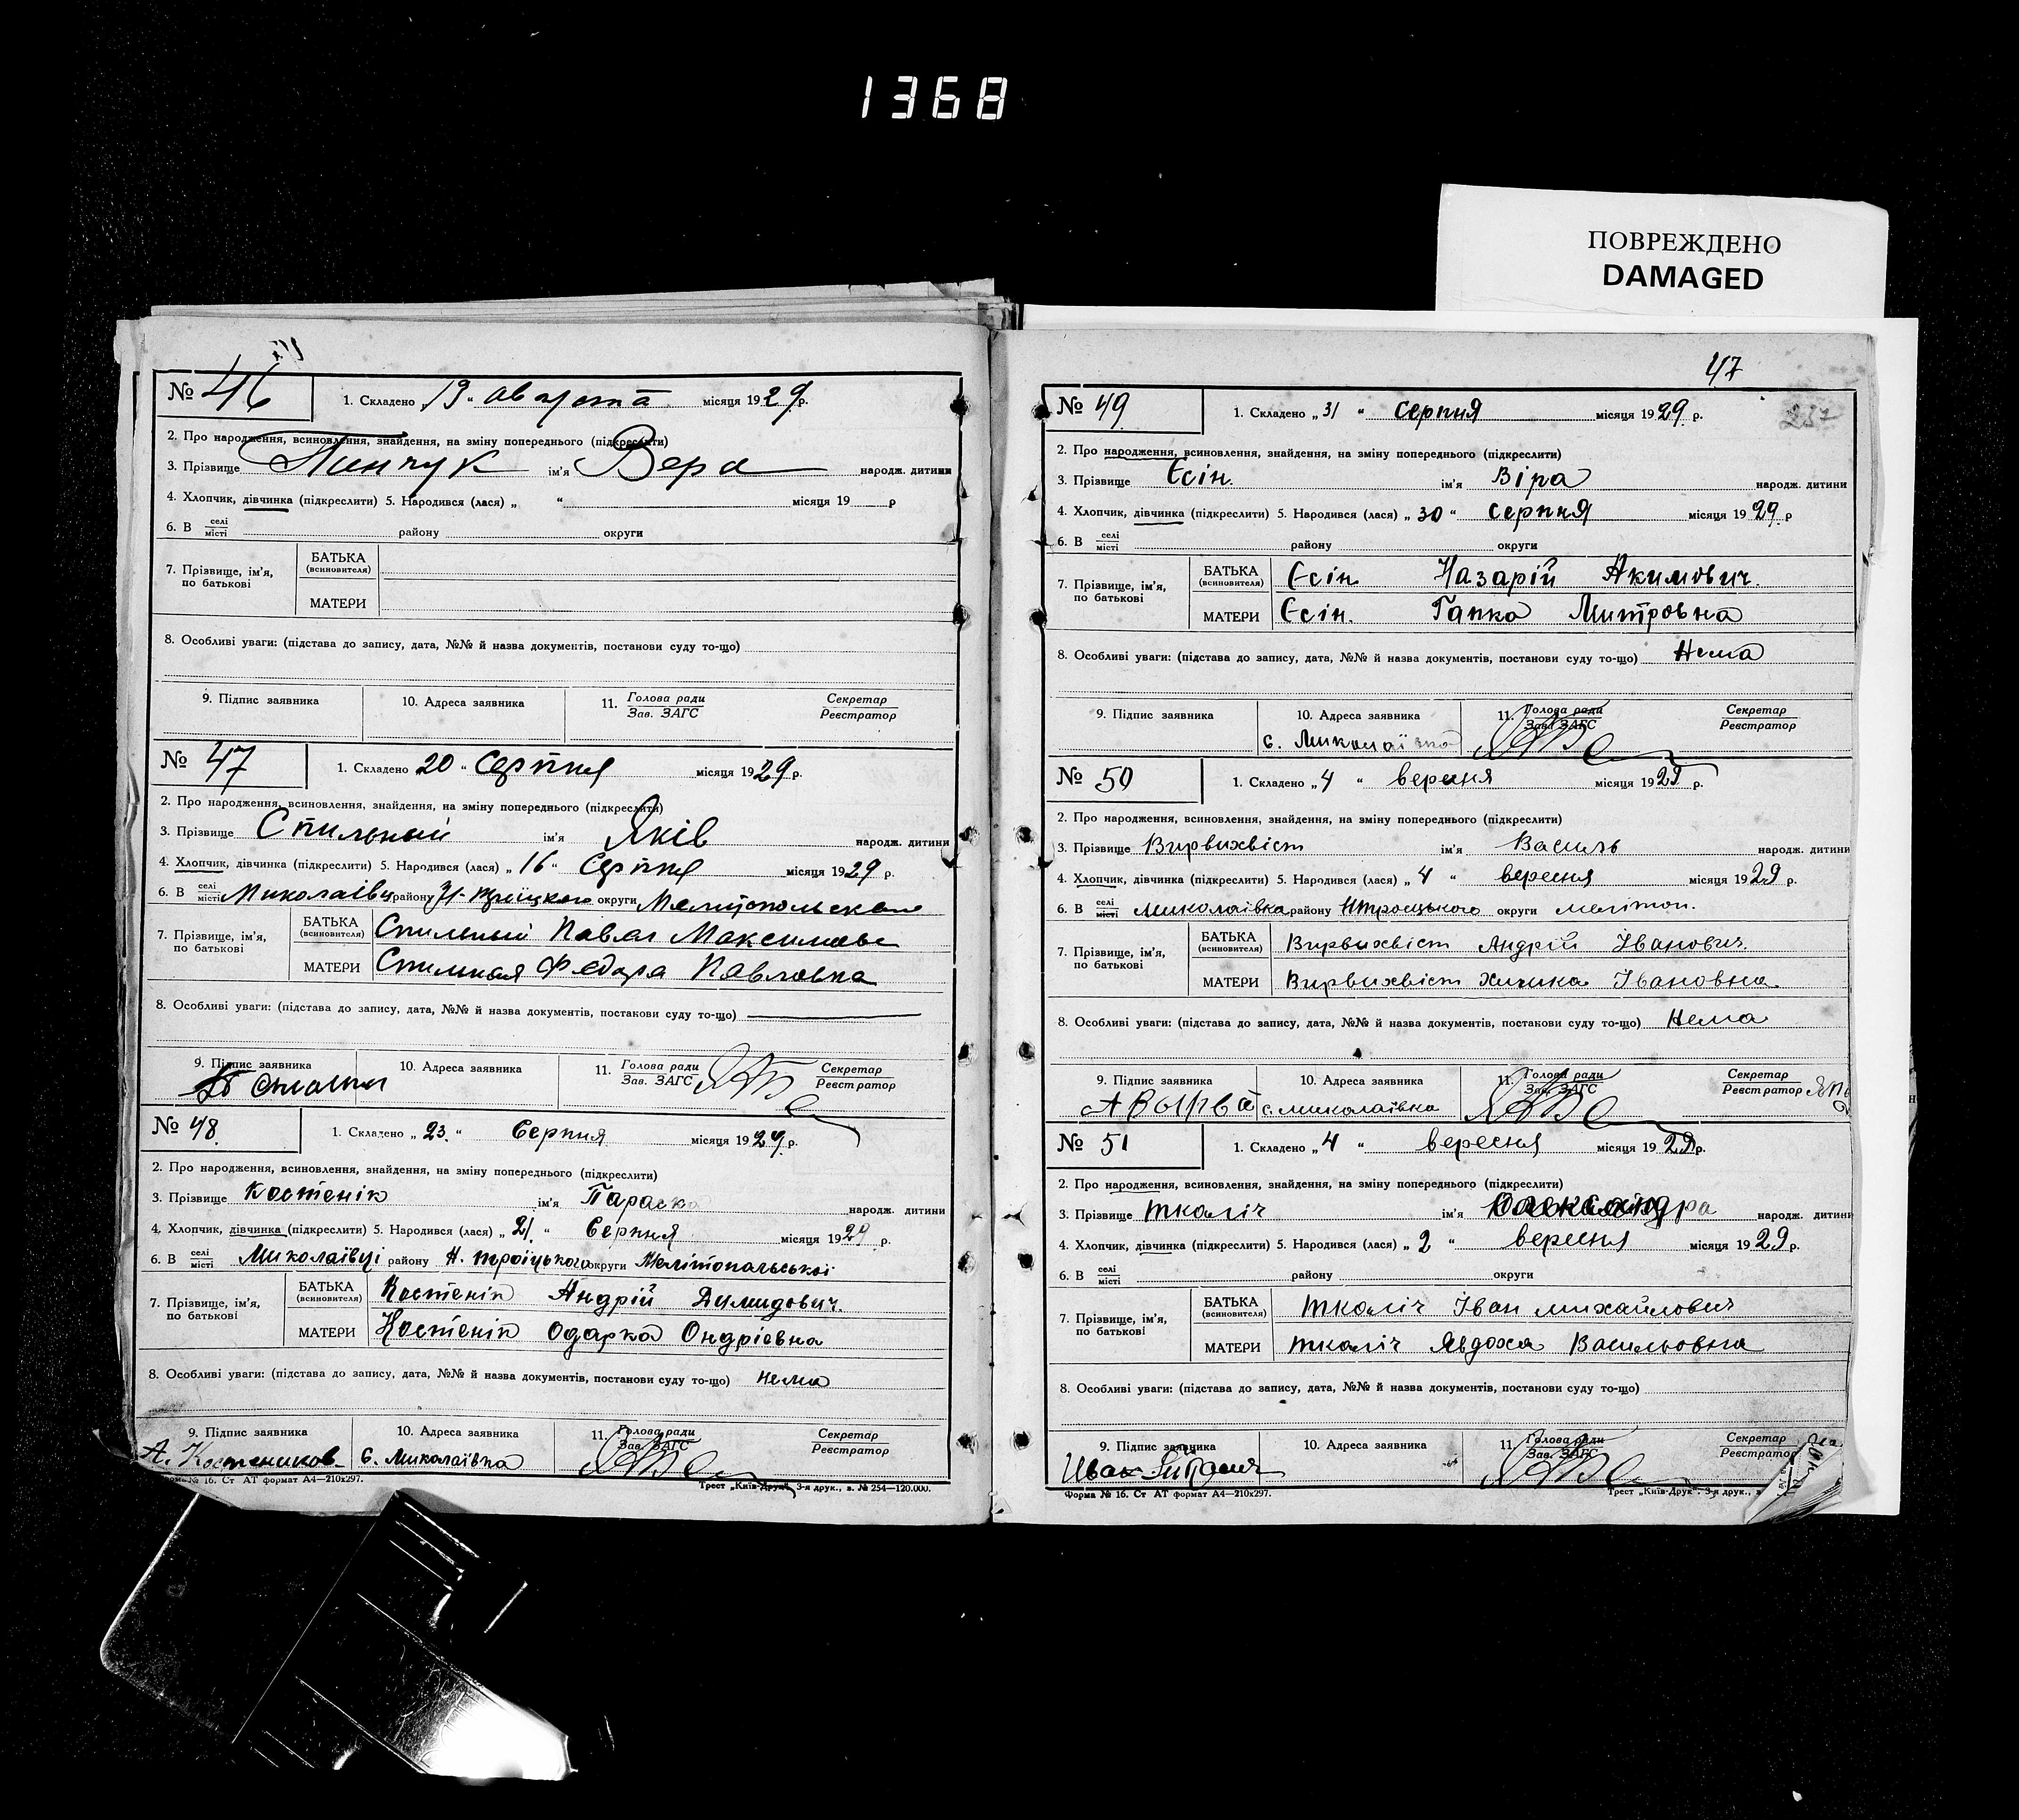 1368
ПОВРЕЖДЕНО
DAMAGED
№ 46
1. Складено „19“ августа місяця 1929 р.
2. Про народження, всиновлення, знайдення, на зміну попереднього (підкреслити)
3. Прізвище Пинчук ім'я Вера народж. дитини
4. Хлопчик, дівчинка (підкреслити) 5. Народився (лася) „ “ місяця 19 р
6. В селі місті району округи
7. Прізвище, ім'я, по батькові
БАТЬКА (всиновителя)
МАТЕРИ
8. Особливі уваги: (підстава до запису, дата, №№ й назва документів, постанови суду то-що)
9. Підпис заявника 10. Адреса заявника 11. Голова ради Зав. ЗАГС Секретар Реєстратор
№ 47
1. Складено 20 “ Серпня місяця 1929 р.
2. Про народження, всиновлення, знайдення, на зміну попереднього (підкреслити)
3. Прізвище Стильный ім'я Яків народж. дитини
4. Хлопчик, дівчинка (підкреслити) 5. Народився (лася) „16“ Серпня місяця 1929 р.
6. В селі місті Миколаівц району округи
7. Прізвище, ім'я, по батькові
БАТЬКА (всиновителя) Стильный Павел
МАТЕРИ Федора Павловна
8. Особливі уваги: (підстава до запису, дата, №№ й назва документів, постакови суду то-що)
9. Підпис заявника 10. Адреса заявника 11. Голова ради Зав. ЗАГС Секретар Реєстратор
№ 48.
1. Складено „23.“ Серпня місяця 1929 р.
2. Про народження, всиновлення, знайдення, на зміну попереднього (підкреслити)
3. Прізвище Костенік ім'я Параска народж. дитини
4. Хлопчик, дівчинка (підкреслити) 5. Народився (лася) „21.“ Серпня місяця 1929 р.
6. В селі місті Миколаівці району Н. троіцького округи Мелітопальськоі
7. Прізвище, ім'я, по батькові
БАТЬКА (всиновителя) Костенік Андрій Димидович.
МАТЕРИ Костенік Одарка Ондріевна
8. Особливі уваги: (підстава до запису, дата, №№ й назва документів, постанови суду то-що) нема
9. Підпис заявника 10. Адреса заявника 11. Голова ради Зав. ЗАГС Секретар Реєстратор
А. Костеников с. Миколаївка
Форма № 16. Ст АТ формат А4—210х297. Трест „Київ-Друк“, 3-я друк., з. № 254—120.000.
47
237
№ 49.
1. Складено „31“ серпня місяця 1929 р.
2. Про народження, всиновлення, знайдення, на зміну попереднього (підкреслити)
3. Прізвище Єсін. ім'я Віра народж. дитини
4. Хлопчик, дівчинка (підкреслити) 5. Народився (лася) „30“ серпня місяця 1929 р
6. В селі місті району округи
7. Прізвище, ім'я, по батькові
БАТЬКА (всиновителя) Єсін. Назарій Акимович.
МАТЕРИ Єсін. Гапка Митровна
8. Особливі уваги: (підстава до запису, дата, №№ й назва документів, постанови суду то-що) Нема
9. Підпис заявника 10. Адреса заявника 11. Голова ради Зав. ЗАГС Секретар Реєстратор
с. Миколаївка
№ 50
1. Складено „4“ вересня місяця 1929 р.
2. Про народження, всиновлення, знайдення, на зміну попереднього (підкреслити)
3. Прізвище Вирвихвіст ім'я Василь народж. дитини
4. Хлопчик, дівчинка (підкреслити) 5. Народився (лася) „4“ вересня місяця 1929 р.
6. В селі місті Миколаівка району Нтроєцького округи мелітоп.
7. Прізвище, ім'я, по батькові
БАТЬКА (всиновителя) Вирвихвіст Андрій Іванович.
МАТЕРИ Вирвихвіст Івановна
8. Особливі уваги: (підстава до запису, дата, №№ й назва документів, постанови суду то-що) Нема
9. Підпис заявника 10. Адреса заявника 11. Голова ради Зав. ЗАГС Секретар Реєстратор
А Вырва с. миколаївка
№ 51
1. Складено „4“ вересня місяця 1929 р.
2. Про народження, всиновлення, знайдення, на зміну попереднього (підкреслити)
3. Прізвище ткаліч ім'я Олександра народж. дитини
4. Хлопчик, дівчинка (підкреслити) 5. Народився (лася) „2“ вересня місяця 1929 р.
6. В селі місті району округи
7. Прізвище, ім'я, по батькові
БАТЬКА (всиновителя) ткаліч Іван михайлович
МАТЕРИ ткаліч Явдоха Васильовна
8. Особливі уваги: (підстава до запису, дата, №№ й назва документів, постанови суду то-що)
9. Підпис заявника 10. Адреса заявника 11. Голова ради Зав. ЗАГС Секретар Реєстратор
Форма № 16. Ст АТ формат А4—210х297. Трест „Київ-Друк“. 3-я друк., з.